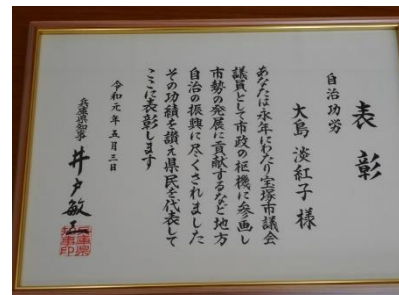 表彰
自治功労
大島淡紅子様
あなたは永年にわたり宝塚市議会
議員として市政の枢機に参画し
市勢の発展に貢献するなど地方
自治の振興に尽くされました
その功績を讃え県民を代表して
ここに表彰します
令和元年五月三日
兵庫県知事 井戸敏三
兵庫県知事印